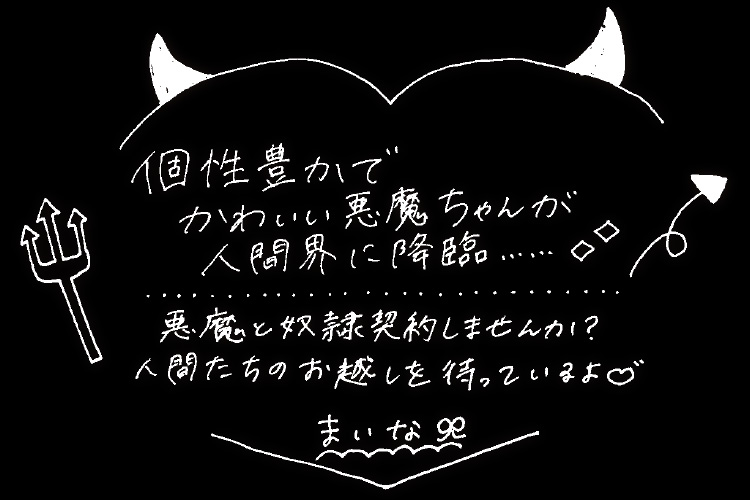 個性豊かで
かわいい悪魔ちゃんが
人間界に降臨……
悪魔と奴隷契約しませんか?
人間たちのお越しを待っているよ♡
まいな